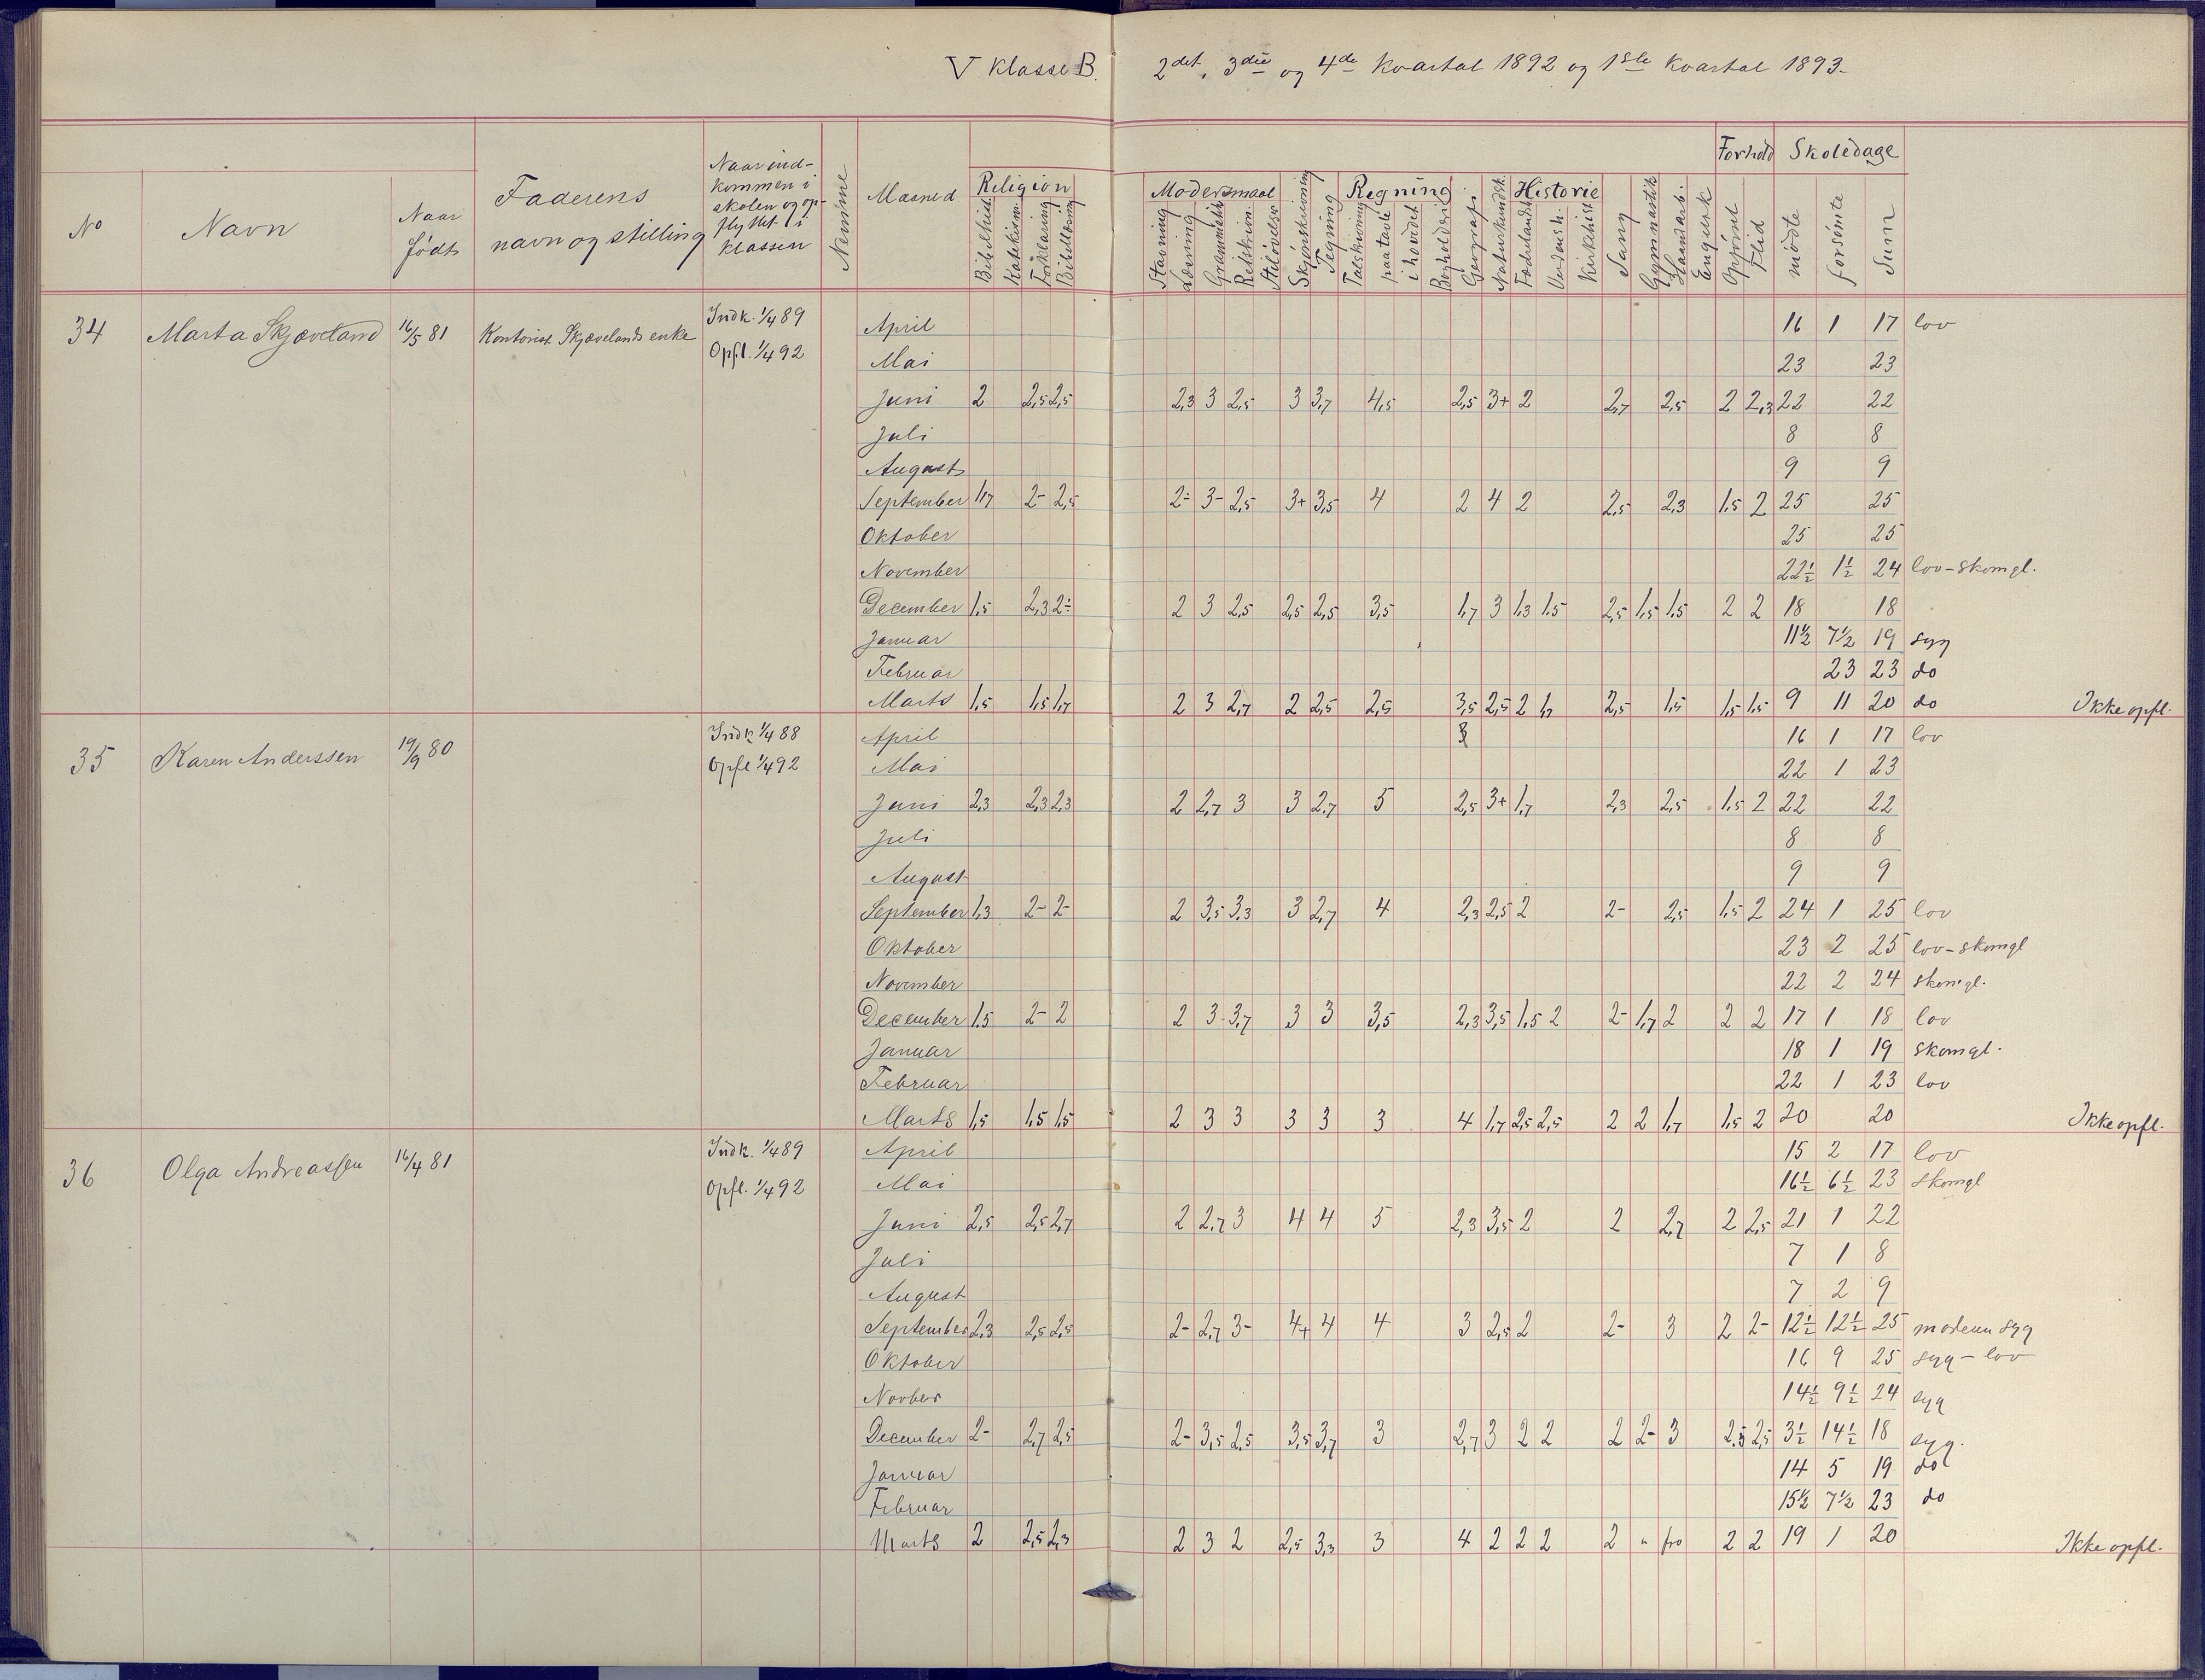 V Klasse B. 2det, 3die og 4de Kvartal 1892 og 1ste Kvartal 1893.
No Navn Naar født Faderens navn og stilling Naar ind-kommen i skolen og op-flyttet i klassen Nemme Maaned Religion Modersmaal Regning Historie Forhold Skoledage
Bibelhist. Katekism. Forklaring Bibellæsning Stavning Læsning Grammatik Retskrivn. Stiløvelser Skjönskrivning Tegning Talskrivning paa tavle i hovedet Bogholderi Geografi Naturkundsk. Fædrelandsh. Verdensh. Kirkehist. Sang Gymnastik Haandarb. Engelsk Opførsel Flid mødte forsömte Sum
34 Marta Skjæveland 16/5 81 Kontorist Skjævelands enke Indk. 1/4 89 April 16 1 17 lov
Opfl. 1/4 92 Mai 23 23
Juni 2 2,5 2,5 2,3 3 2,5 3 3,7 4,5 2,5 3+ 2 2,7 2,5 2 2,3 22 22
Juli 8 8
August 9 9
September 1,7 2- 2,5 2- 3- 2,5 3+ 3,5 4 2 4 2 2,5 2,3 1,5 2 25 25
Oktober 25 25
November 22½ 1½ 24 lov-skomgl.
December 1,5 2,3 2- 2 3 2,5 2,5 2,5 3,5 1,7 3 1,3 1,5 2,5 1,5 1,5 2 2 18 18
Januar 11½ 7½ 19 syg
Februar 23 23 do
Marts 1,5 1,5 1,7 2 3 2,7 2 2,5 2,5 3,5 2,5 2 1,7 2,5 1,5 1,5 1,5 9 11 20 do Ikke opfl.
35 Karen Anderssen 19/9 80 Indk 1/4 88 April 16 1 17 lov
Opfl 1/4 92 Mai 22 1 23
Juni 2,3 2,3 2,3 2 2,7 3 3 2,7 5 2,5 3+ 1,7 2,3 2,5 1,5 2 22 22
Juli 8 8
August 9 9
September 1,3 2- 2- 2 3,5 3,3 3 2,7 4 2,3 2,5 2 2- 2,5 1,5 2 24 1 25 lov
Oktober 23 2 25 lov-skomgl
November 22 2 24 skomgl.
December 1,5 2- 2 2 3- 3,7 3 3 3,5 2,3 3,5 1,5 2 2- 1,7 2 2 2 17 1 18 lov
Januar 18 1 19 skomgl.
Februar 22 1 23 lov
Marts 1,5 1,5 1,5 2 3 3 3 3 3 4 1,7 2,5 2,5 2 2 1,7 1,5 2 20 20 Ikke opfl.
36 Olga Andreassen 16/4 81 Indk. 1/4 89 April 15 2 17 lov
Opfl. 1/4 92 Mai 16½ 6½ 23 skomgl
Juni 2,5 2,5 2,7 2 2,7 3 4 4 5 2,3 3,5 2 2 2,7 2 2,5 21 1 22
Juli 7 1 8
August 7 2 9
September 2,3 2,5 2,5 2- 2,7 3- 4+ 4 4 3 2,5 2 2- 3 2 2- 12½ 12½ 25 moderen syg
Oktober 16 9 25 syg-lov
Novber 14½ 9½ 24 syg
December 2- 2,7 2,5 2- 3,5 2,5 3,5 3,7 3 2,7 3 2 2 2 2- 3 2,5 2,5 3½ 14½ 18 syg.
Januar 14 5 19 do
Februar 15½ 7½ 23 do
Marts 2 2,5 2,3 2 3 2 2,5 3,3 3 4 2 2 2 2 " fri 2 2 19 1 20 Ikke opfl.